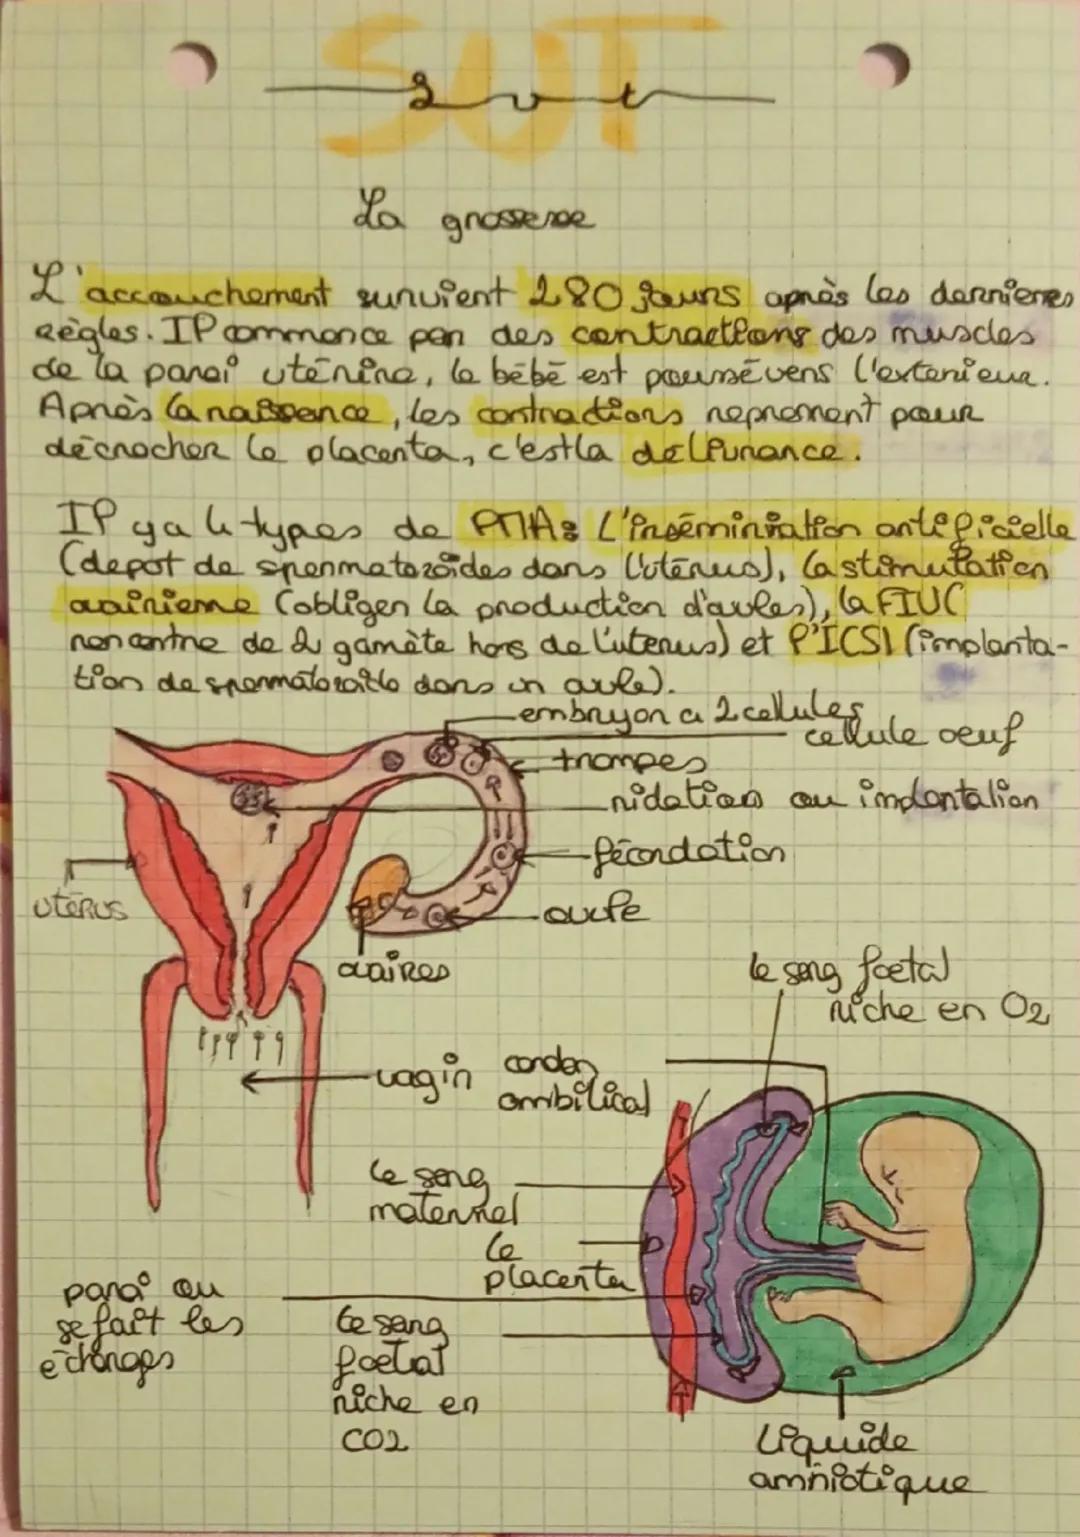 SVT
svt
La grossesse
L'accouchement survient 280 jours après les dernieres
règles. Il commence par des contractions des muscles
de la paroi utérine, le bébé est poussé vers l'exterieur.
Après la naissence, les contractions reprennent pour
décrocher le placenta, c'est la délivrance.
Il y a 4 types de PMA: L'inséminiation artificielle
(depot de spermatozoïdes dans l'utérus), la stimulation
ovairienne (obliger la production d'ovules), la FIV (
rencontre de 2 gamète hors de l'uterus) et l'ICSI (implanta-
tion de spermatozoïde dans un ovule).
embryon a 2 cellules
cellule oeuf
trompes
nidation ou implantation
fécondation
utérus
ovule
ovaires
le sang foetal
riche en O2
vagin
cordon
ombilical
le sang
maternel
le
placenta
paroi ou
se fait les
échanges
le sang
foetal
riche en
CO2
liquide
amniotique